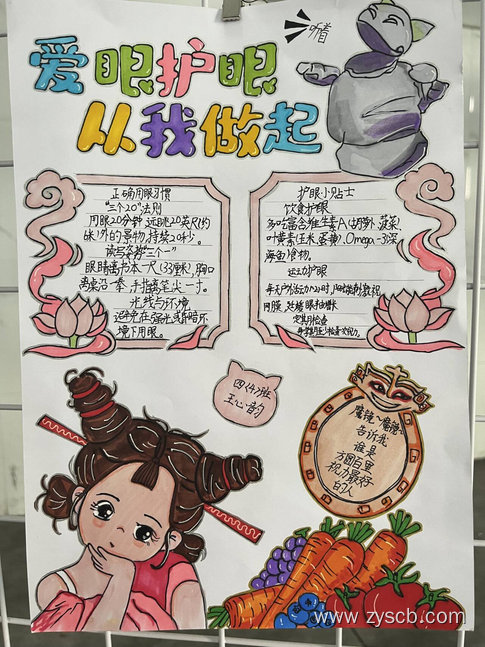 爱眼护眼
从我做起
听着
正确用眼习惯
"三个20"法则
用眼20分钟,远眺20英尺(约
6米)外的景物,持续20秒。
读写姿势"三个一"
眼睛离书本一尺(33厘米),胸口
离桌沿一拳,手指离笔尖一寸。
光线与环境
避免在强光或昏暗环
境下用眼。
护眼小贴士
饮食护眼
多吃富含维生素A(胡萝卜、菠菜)
叶黄素(玉米、蛋黄)、Omega-3(深
海鱼)食物。
运动护眼
每天户外活动
定期检查
四(4)班
王心韵
魔镜,魔镜
告诉我
谁是
方圆百里
视力最好
的人
www.zyscb.com